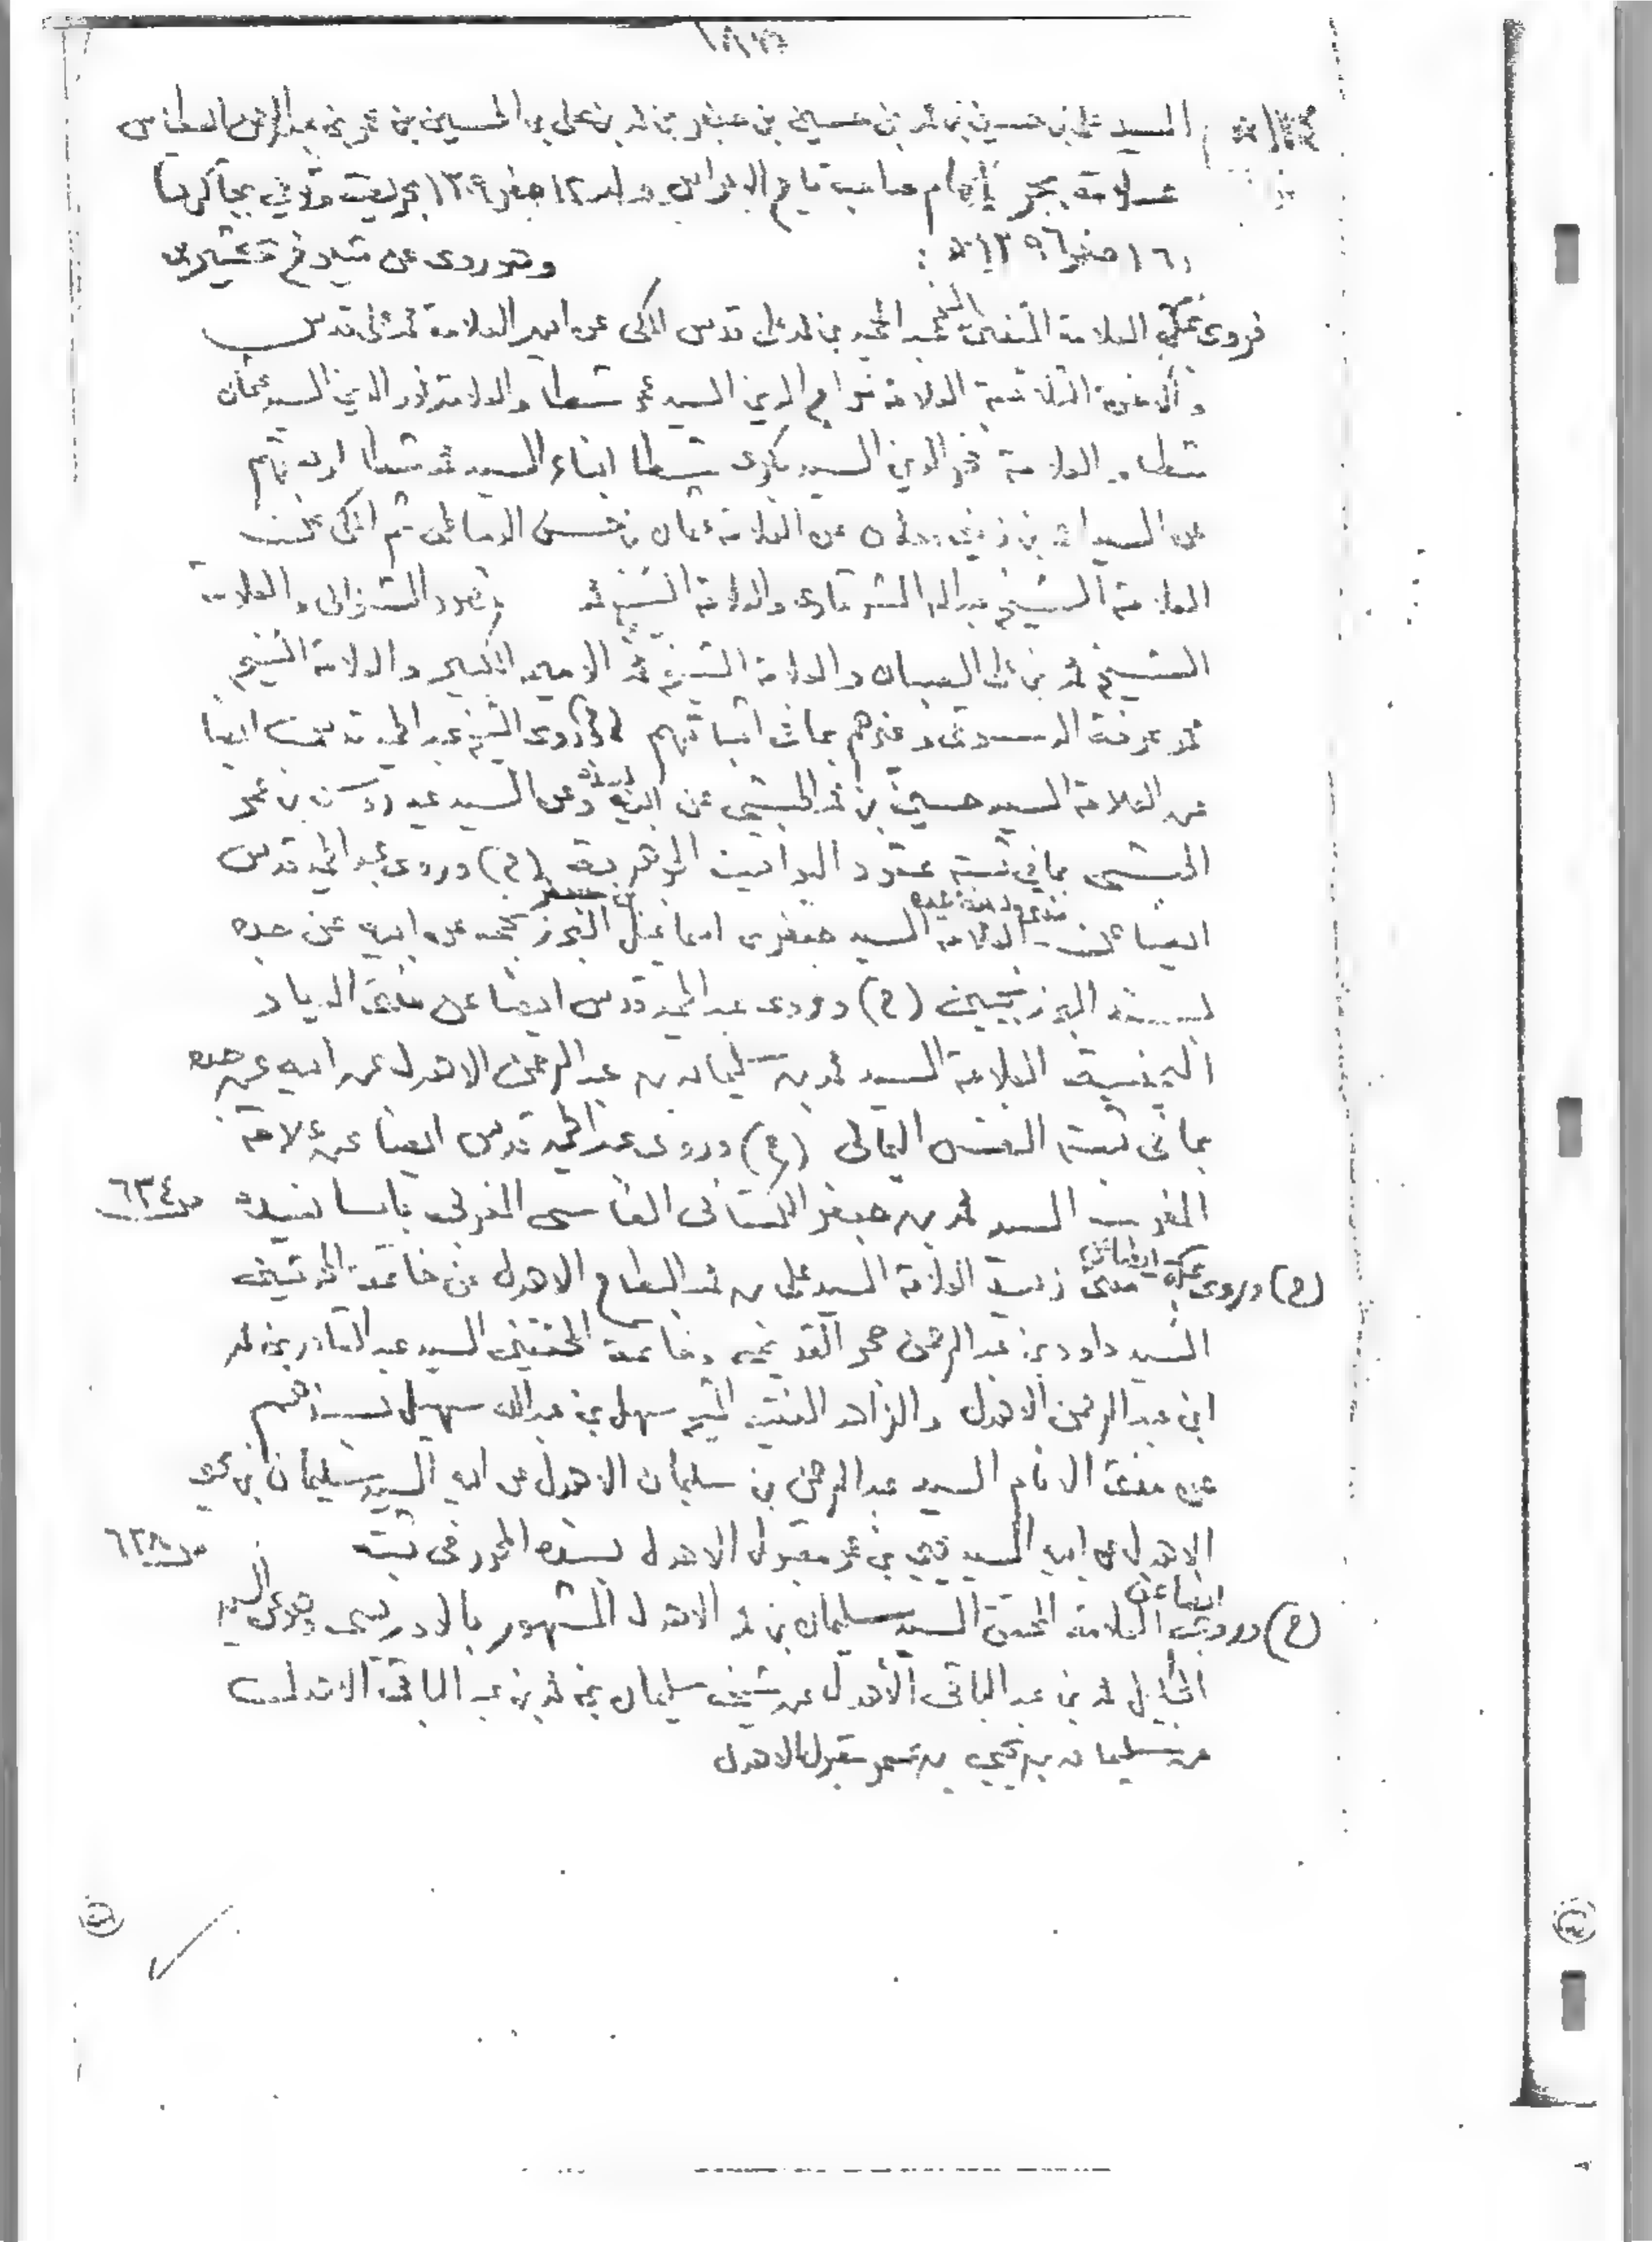 السيد علي بن حسين بن محمد بن حسين بن جعفر بن محمد بن علي بن الحسين بن عمر بن عبدالرحمن العطاس
علامة بحر إمام صاحب تاج الاعراس ولد ١٢ صفر ١٣٠٩ بحريضة وتوفي بجاكرتا
١٦ صفر ١٣٩٦ هـ : وهو روى عن شيوخ كثيرين
فروى بمكة العلامة الشيخ عبد الحميد بن محمد علي قدس المكي عن ابيه العلامة محمد علي قدس
والاخوة الثلاثة العلامة سراج الدين السيد عمر شطا والعلامة نور الدين السيد عثمان
شطا والعلامة فخر الدين السيد بكري شطا ابناء السيد محمد شطا اربعتهم
عن السيد احمد بن زيني دحلان عن العلامة عثمان بن حسن الدمياطي ثم المكي عن
العلامة الشيخ عبدالله الشرقاوي والعلامة الشيخ محمد الشنواني والعلامة
الشيخ محمد بن علي الصبان والعلامة الشيخ محمد الامير الكبير والعلامة الشيخ
محمد عرفة الدسوقي وغيرهم بما في اثباتهم (ح) وروى الشيخ عبد الحميد قدس ايضا
عن العلامة السيد حسين بن محمد الحبشي عن ابيه وعن السيد عيدروس بن عمر
الحبشي بما في ثبته عقود اليواقيت الجوهرية (ح) وروى عبد الحميد قدس
ايضا عن العلامة السيد جعفر بن اسماعيل البرزنجي عن ابيه عن جده
بسند البرزنجيين (ح) وروى عبد الحميد قدس ايضا عن مفتي الديار
اليمنية العلامة السيد محمد بن سليمان بن عبد الرحمن الاهدل عن ابيه عن جده
بما في ثبته النفس اليماني (ح) وروى عبد الحميد قدس ايضا عن علامة
المغرب السيد محمد بن جعفر الكتاني الفاسي المغربي باسانيده ص ٦٣٤
(ح) وروى ايضا عن مفتي زبيد العلامة السيد علي بن محمد البطاح الاهدل عن خاتمة
السيد داود بن عبد الرحمن حجر القديمي وخاتمة المحققين السيد عبد القادر بن محمد
ابن عبد الرحمن الاهدل والزاهد سهل بن عبدالله سهيل
عن مفتي الانام السيد عبد الرحمن بن سليمان الاهدل عن ابيه السيد سليمان بن يحيى
الاهدل عن ابيه السيد يحيى بن عمر مقبول الاهدل بسنده المحرر في ثبته ص ٦٢٨
(ح) وروى ايضا عن العلامة المحقق السيد سليمان بن محمد الاهدل المشهور بالادريسي وهو عن السيد
الجليل محمد بن عبد الباقي الاهدل عن شيخه سليمان بن محمد بن عبد الباقي الاهدل
عن سليمان بن يحيى بن عمر مقبول الاهدل